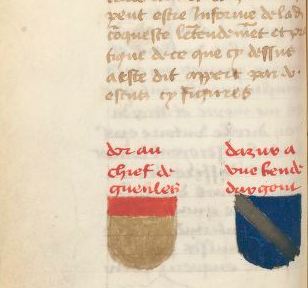 peut estre Informe de la d
coqueste lentendemet et p
tique de ce que cy dessus
a este dit appert par do
escus cy figures
dor au
chief de
gueules
dazur a
une bende
dargent